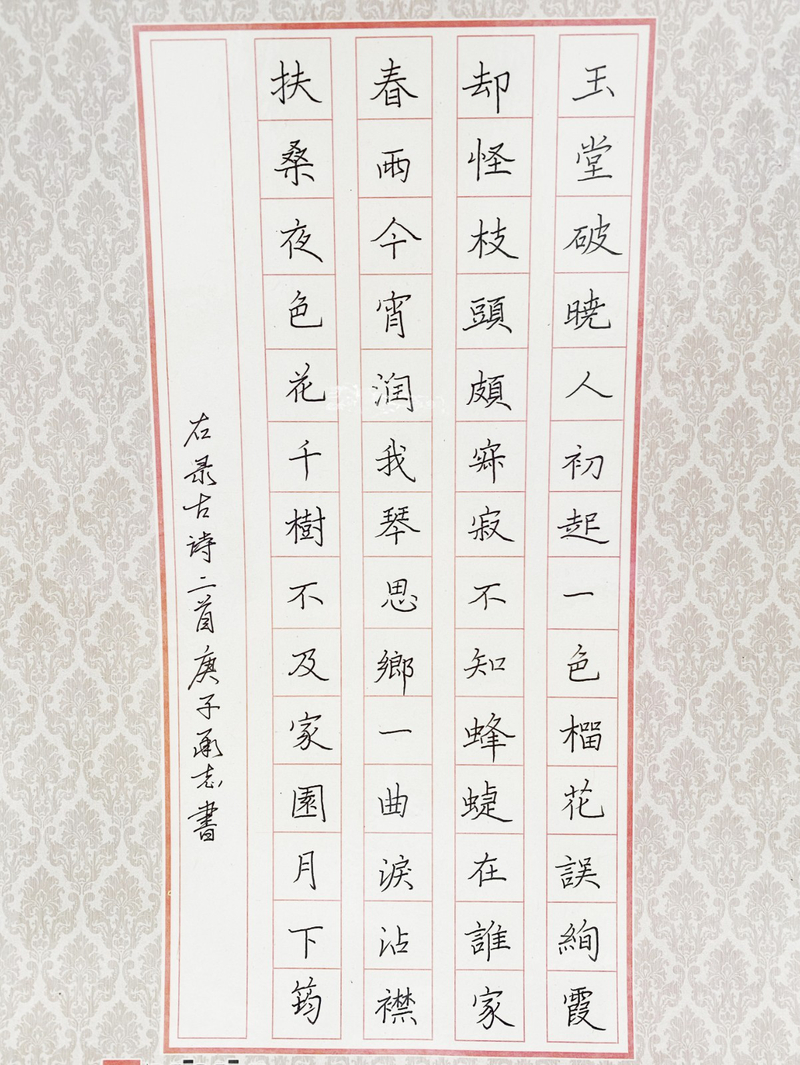 玉堂破曉人初起一色榴花誤絢霞
却怪枝頭頗寂不知蜂蜨在誰家
春雨今宵潤我琴思鄉一曲淚沾襟
扶桑夜色花千樹不及家園月下筠
右录古诗二首庚子承志書